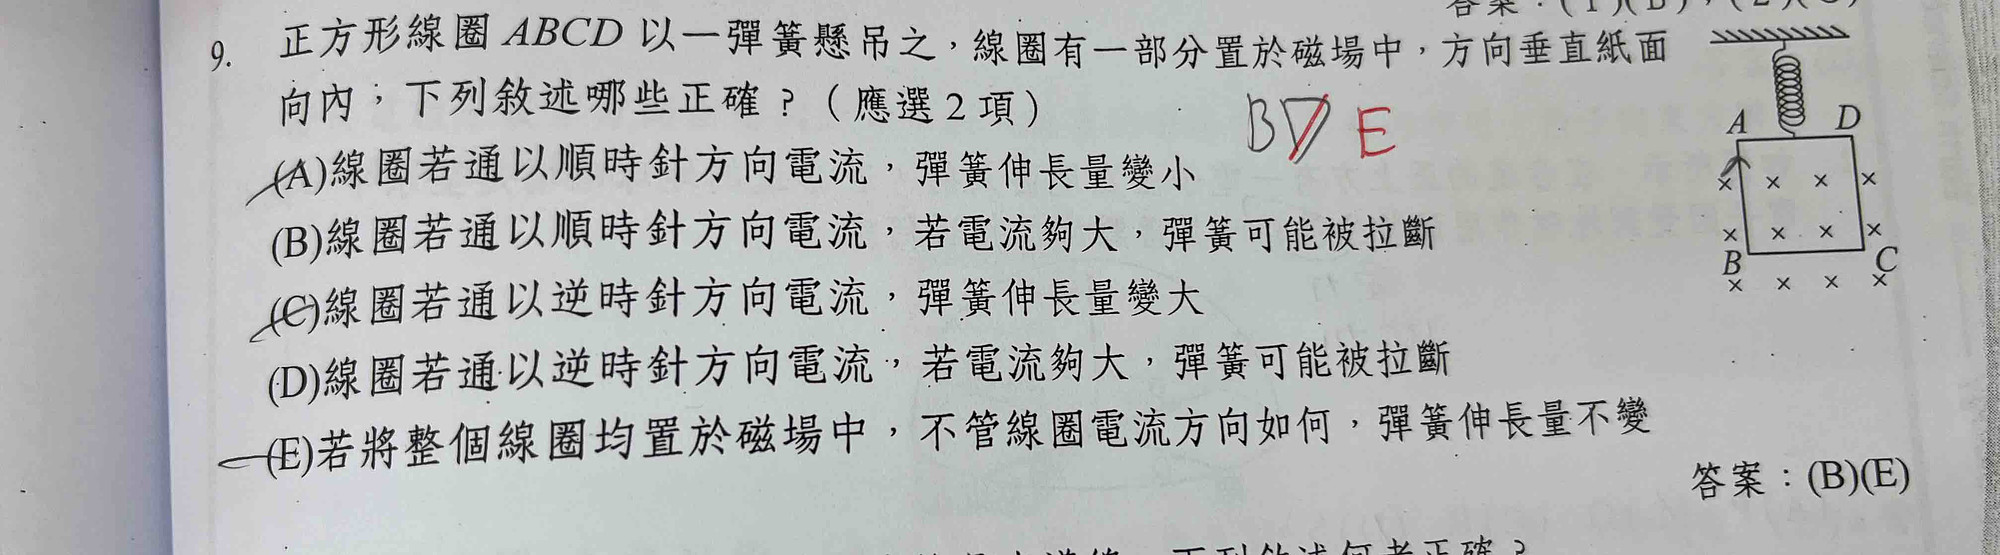 9. 正方形線圈 ABCD 以一彈簧懸吊之，線圈有一部分置於磁場中，方向垂直紙面
向內，下列敘述哪些正確？（應選 2 項）
B E
(A)線圈若通以順時針方向電流，彈簧伸長量變小
(B)線圈若通以順時針方向電流，若電流夠大，彈簧可能被拉斷
(C)線圈若通以逆時針方向電流，彈簧伸長量變大
(D)線圈若通以逆時針方向電流，若電流夠大，彈簧可能被拉斷
(E)若將整個線圈均置於磁場中，不管線圈電流方向如何，彈簧伸長量不變
答案：(B)(E)
A D
× × × ×
× × × ×
B C
× × × ×